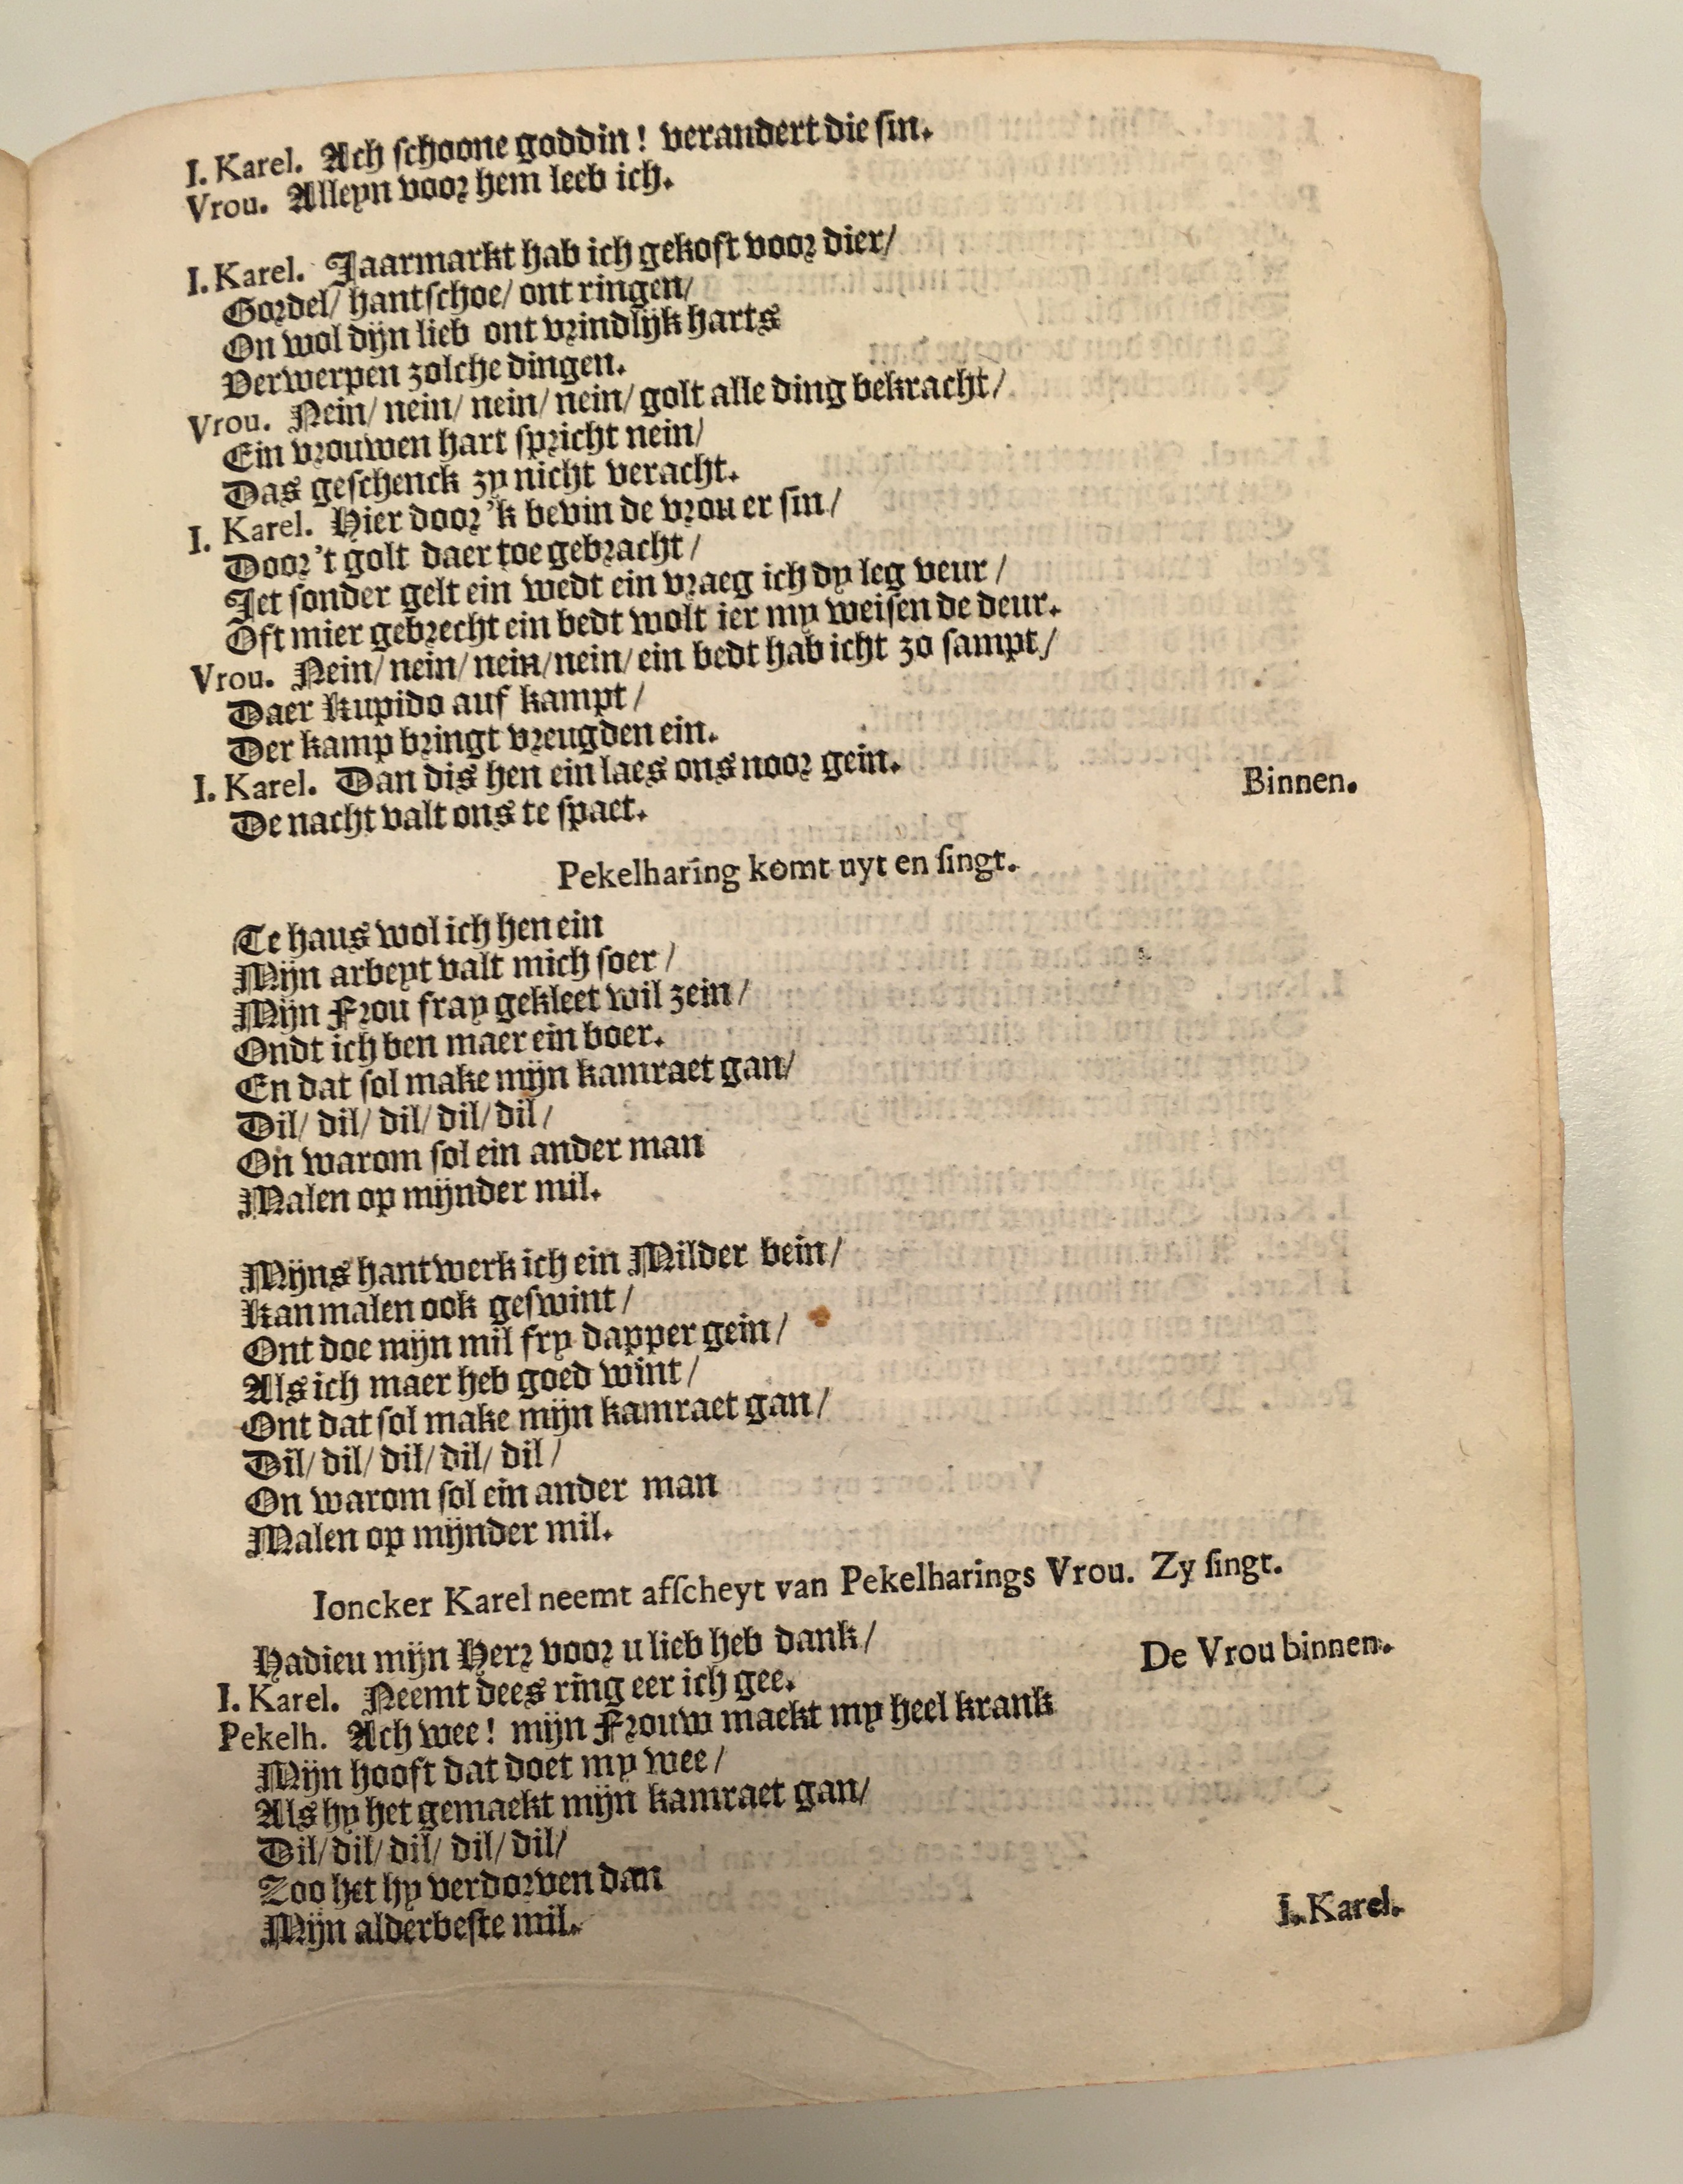 I. Karel. Ach schoone goddin! verandert die sin.
Vrou. Alleyn voor hem leeb ich.
I. Karel. Jaarmarkt hab ich gekoft voor dier/
Gordel/ hantschoe/ ont ringen/
On wol dijn lieb ont vrindlijk harts
Verwerpen zolche dingen.
Vrou. Nein/ nein/ nein/ nein/ golt alle ding bekracht/
Ein vrouwen hart spricht nein/
Das geschenck zy nicht veracht.
I. Karel. Hier door 'k bevin de vrou er sin/
Door 't golt daer toe gebracht/
Jet sonder gelt ein wedt ein vraeg ich dy leg veur/
Oft mier gebrecht ein bedt wolt ier my weisen de deur.
Vrou. Nein/ nein/ nein/ nein/ ein bedt hab icht zo sampt/
Daer Kupido auf kampt/
Der kamp bringt vreugden ein.
I. Karel. Dan dis hen ein laes ons noor gein.
De nacht valt ons te spaet. Binnen.
Pekelharing komt uyt en singt.
Te haus wol ich hen ein
Mijn arbeyt valt mich soer/
Mijn Frou fray gekleet wil zein/
Ondt ich ben maer ein boer.
En dat sol make mijn kamraet gan/
Dil/ dil/ dil/ dil/ dil/
On warom sol ein ander man
Malen op mijnder mil.
Mijns hantwerk ich ein Milder bein/
Kan malen ook geswint/
Ont doe mijn mil fry dapper gein/
Als ich maer heb goed wint/
Ont dat sol make mijn kamraet gan/
Dil/ dil/ dil/ dil/ dil/
On warom sol ein ander man
Malen op mijnder mil.
Ioncker Karel neemt afscheyt van Pekelharings Vrou. Zy singt.
Hadieu mijn Herr voor u lieb heb dank/
I. Karel. Neemt dees ring eer ich gee. De Vrou binnen.
Pekelh. Ach wee! mijn Frouw maekt my heel krank
Mijn hooft dat doet my wee/
Als hy het gemaekt mijn kamraet gan/
Dil/ dil/ dil/ dil/ dil/
Zoo het hy verdorven dan
Mijn alderbeste mil.
I. Karel.